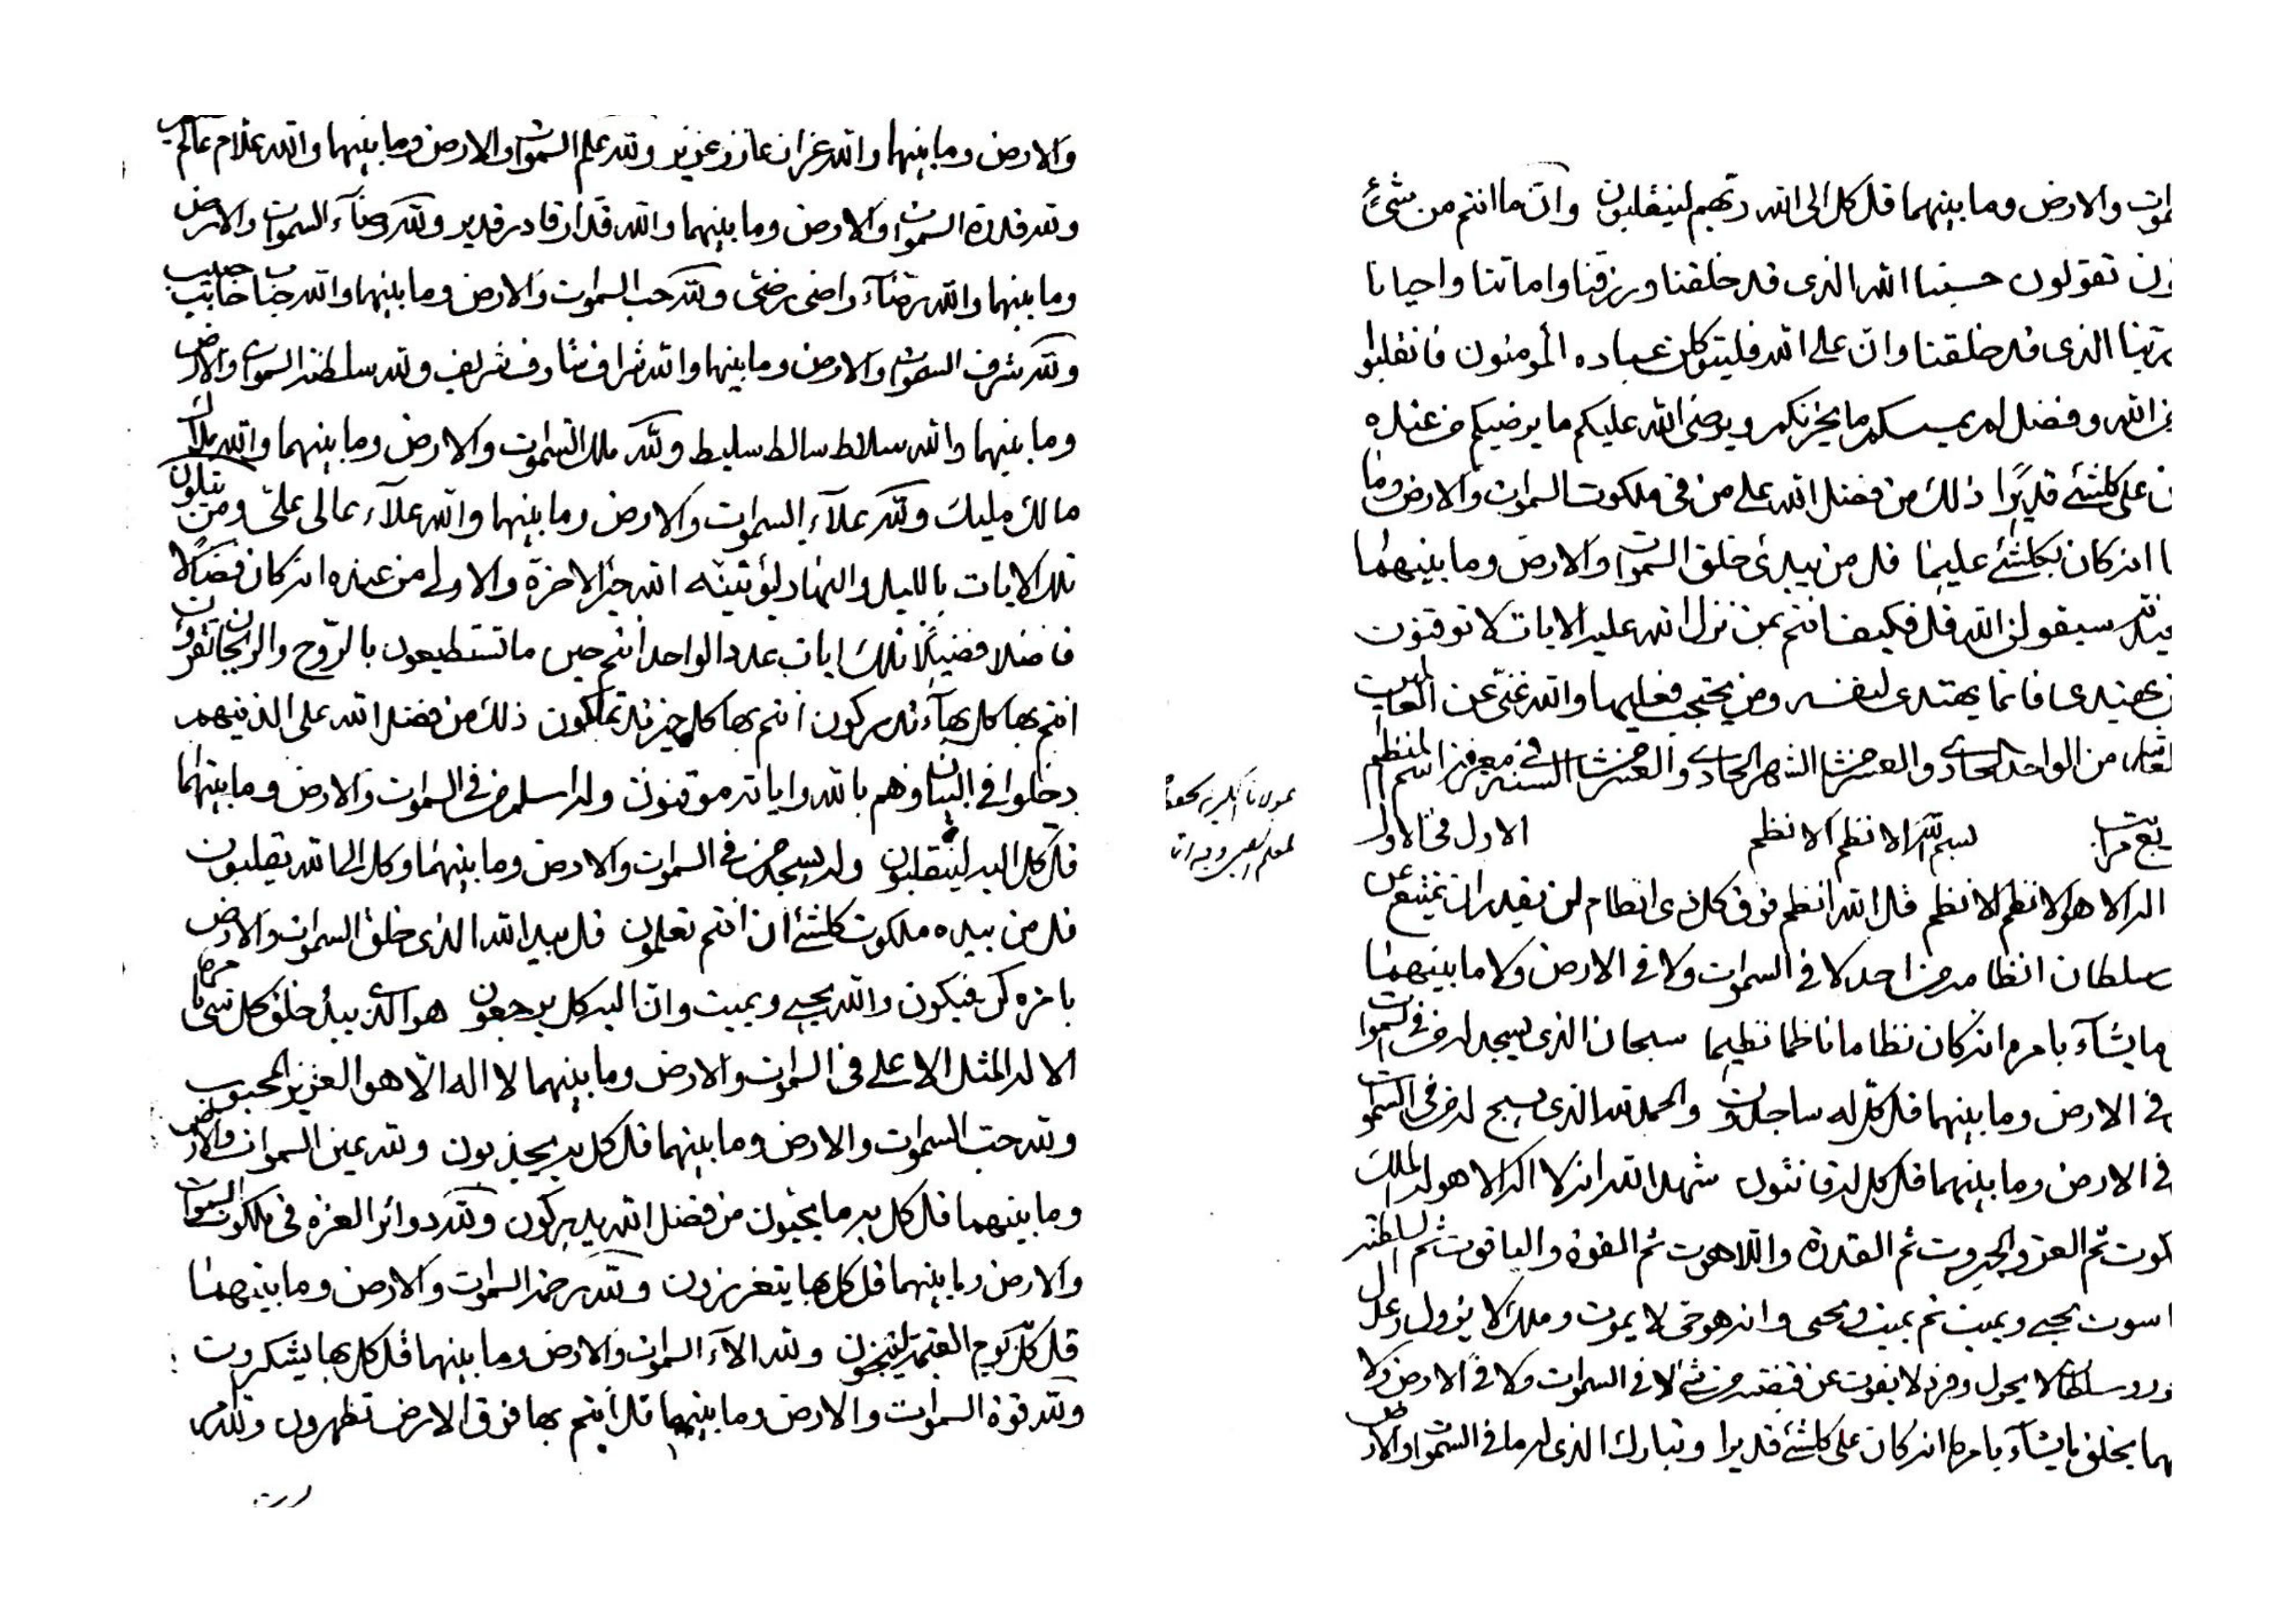 موات والارض وما بينهما قل كل الى الله ربهم لينقلبون وان ما انتم من شئ
تقولون حسبنا الله الذى قد خلقنا ورزقنا واماتنا واحيانا
ربنا الذى قد خلقنا وان على الله فليتوكلن عباده المؤمنون فانقلبوا
من الله وفضل لم يمسسكم ما يحزنكم ويرضى الله عليكم ما يرضيكم من عنده
على كلشئ قديرا ذلك من فضل الله على من فى ملكوت السموات والارض وما
انه كان بكلشئ عليما قل من يبدئ خلق السموات والارض وما بينهما
سيقولن الله قل فكيف انتم بمن نزل الله عليه الايات لا توقنون
يهتدى فانما يهتدى لنفسه ومن يحتجب فعليها والله غنى عن العالمين
من الواحد الحادى والعشر من الشهر الحادى والعشر من السنه فى معرفة اسم المنظم
بسم الله الانظم الانظم الاول فى الاول
الله لا اله الا هو الانظم الانظم قل الله انظم فوق كل ذى انظام لن يقدر ان يمتنع عن
سلطان انظامه من احد لا فى السموات ولا فى الارض ولا ما بينهما
ما يشاء بامره انه كان نظاما ناظما نظيما سبحان الذى يسجد له من فى السموات
فى الارض وما بينهما قل كل له ساجدون والحمد لله الذى يسبح له من فى السموات
فى الارض وما بينهما قل كل له قانتون شهد الله انه لا اله الا هو له الملك
كوت ثم العز والجبروت ثم القدرة واللاهوت ثم القوة والياقوت ثم السلطنة
اسوت يحيى ويميت ثم يميت ويحيى وانه هو حى لا يموت وملك لا يزول وعدل
سلطان لا يحول وفرد لا يفوت عن قبضته من شئ لا فى السموات ولا فى الارض ولا
هما يخلق ما يشاء بامره انه كان على كلشئ قديرا وتبارك الذى له ما فى السموات والارض
والارض وما بينهما والله عزاز عازز عزيز ولله علم السموات والارض وما بينهما والله علام عالم
ولله قدرة السموات والارض وما بينهما والله قدار قادر قدير ولله رضاء السموات والارض
وما بينهما والله رضاء راضى رضى ولله حب السموات والارض وما بينهما والله حباب حابب حبيب
ولله شرف السموات والارض وما بينهما والله شراف شارف شريف ولله سلطنة السموات والارض
وما بينهما والله سلاط سالط سليط ولله ملك السموات والارض وما بينهما والله ملاك
مالك مليك ولله علاء السموات والارض وما بينهما والله علاء عالى على ومن يتلون
تلك الايات بالليل والنهار ليؤتينه الله خير الاخرة والاولى من عنده انه كان فضالا
فاضلا فضيلا تلك ايات عدد الواحد انتم حين ما تستطيعون بالروح والريحان تقرئون
انتم بها كل بهاء تدركون انتم بها كل خير تملكون ذلك من فضل الله على الذينهم
دخلوا فى البيان وهم بالله واياته موقنون وله اسلم من فى السموات والارض وما بينهما
قل كل اليه لينقلبون وله يسجد من فى السموات والارض وما بينهما وكل الى الله يقلبون
قل من بيده ملكوت كلشئ ان انتم تعلمون قل بيد الله الذى خلق السموات والارض
بامره كن فيكون والله يحيى ويميت وان اليه كل يرجعون هو الذى يبدء خلق كل شئ بامره
الا له المثل الاعلى فى السموات والارض وما بينهما لا اله الا هو العزيز المحبوب
ولله حب السموات والارض وما بينهما قل كل به يجذبون ولله عين السموات والارض
وما بينهما قل كل به ما يحبون من فضل الله يدركون ولله دوائر العزة فى ملكوت السموات
والارض وما بينهما قل كل بها يتعززون ولله رحمة السموات والارض وما بينهما
قل كل يوم القيمة لينجون ولله الاء السموات والارض وما بينهما قل كل بها يشكرون
ولله قوة السموات والارض وما بينهما قل انتم بها فوق الارض تظهرون ولله